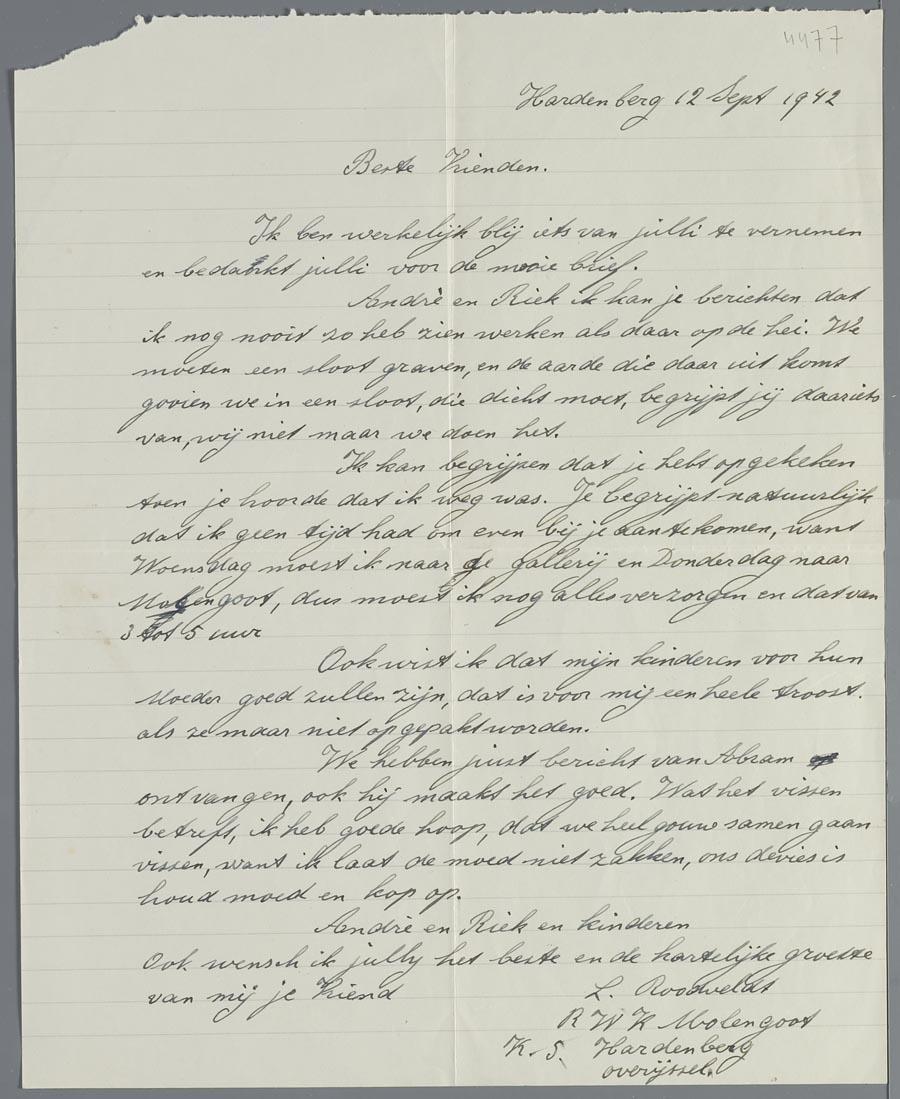 4477
Hardenberg 12 Sept 1942
Beste Vrienden.
Ik ben werkelijk blij iets van julli te vernemen
en bedankt julli voor de mooie brief.
Andrè en Riek ik kan je berichten dat
ik nog nooit zo heb zien werken als daar op de hei. We
moeten een sloot graven, en de aarde die daar uit komt
gooien we in een sloot, die dicht moet, begrijpt jij daar iets
van, wij niet maar we doen het.
Ik kan begrijpen dat je hebt opgekeken
toen je hoorde dat ik weg was. Je begrijpt natuurlijk
dat ik geen tijd had om even bij je aan te komen, want
Woensdag moest ik naar de gallerij en Donderdag naar
Molengoot, dus moest ik nog alles verzorgen en dat van
3 tot 5 uur
Ook wist ik dat mijn kinderen voor hun
Moeder goed zullen zijn, dat is voor mij een heele troost.
als ze maar niet opgepakt worden.
We hebben juist bericht van Abram
ontvangen, ook hij maakt het goed. Wat het vissen
betreft, ik heb goede hoop, dat we heel gouw samen gaan
vissen, want ik laat de moed niet zakken, ons devies is
houd moed en kop op.
Andrè en Riek en kinderen
Ook wensch ik jully het beste en de hartelijke groete
van mij je Vriend
L. Roodveldt
R W K Molengoot
K. S. Hardenberg
overijssel.